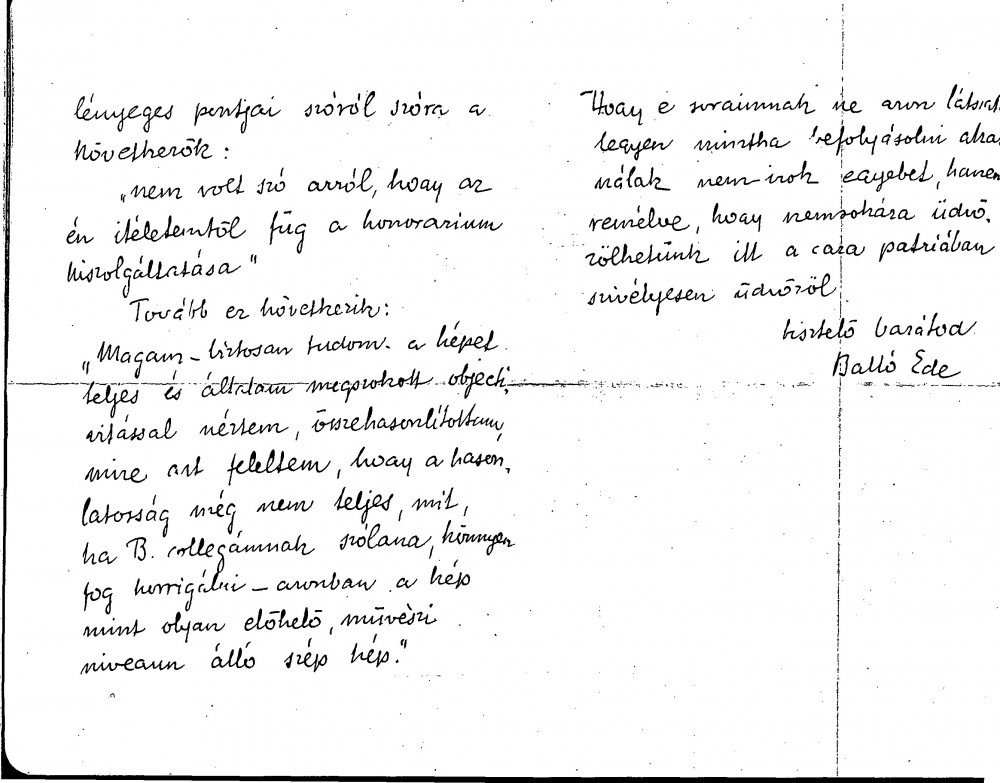 lényeges pontjai szóról szóra a
következők :
„nem volt szó arról, hogy az
én itéletemtől füg a honorarium
kiszolgáltatása"
Tovább ez következik:
„Magam – biztosan tudom – a képet
teljes és általam megszokott objecti,
vitással néztem, összehasonlítottam,
mire azt feleltem, hogy a hason,
latosság még nem teljes, mit,
ha B. collegámnak szólana, könnyen
fog korrigálni – azonban a kép
mint olyan előkelő, művészi
niveaun álló szép kép."
Hogy e soraimnak ne azon látszat
legyen mintha befolyásolni aka
nálak nem irok egyebet, hanem
remélve, hogy nemsokára üdvö,
zölhetünk itt a cara patriában
szivélyesen üdvözöl
tisztelő barátod
Balló Ede